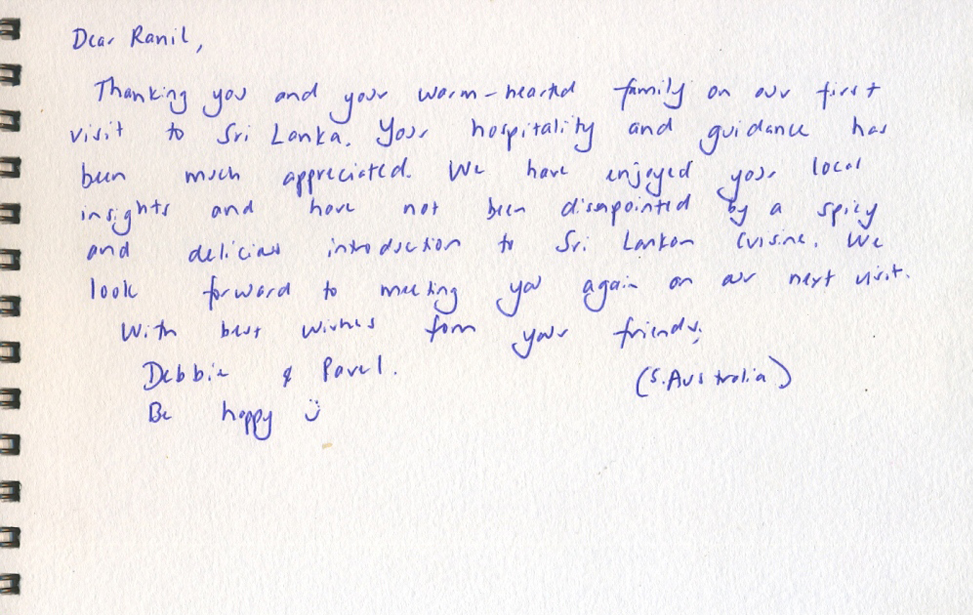 Dear Ranil,
Thanking you and your warm-hearted family on our first
visit to Sri Lanka. Your hospitality and guidance has
been much appreciated. We have enjoyed your local
insights and have not been dissapointed by a spicy
and delicious introduction to Sri Lankan Cuisine. We
look forward to meeting you again on our next visit.
With best wishes from your friends,
Debbie & Pavel.
(S. Australia)
Be happy